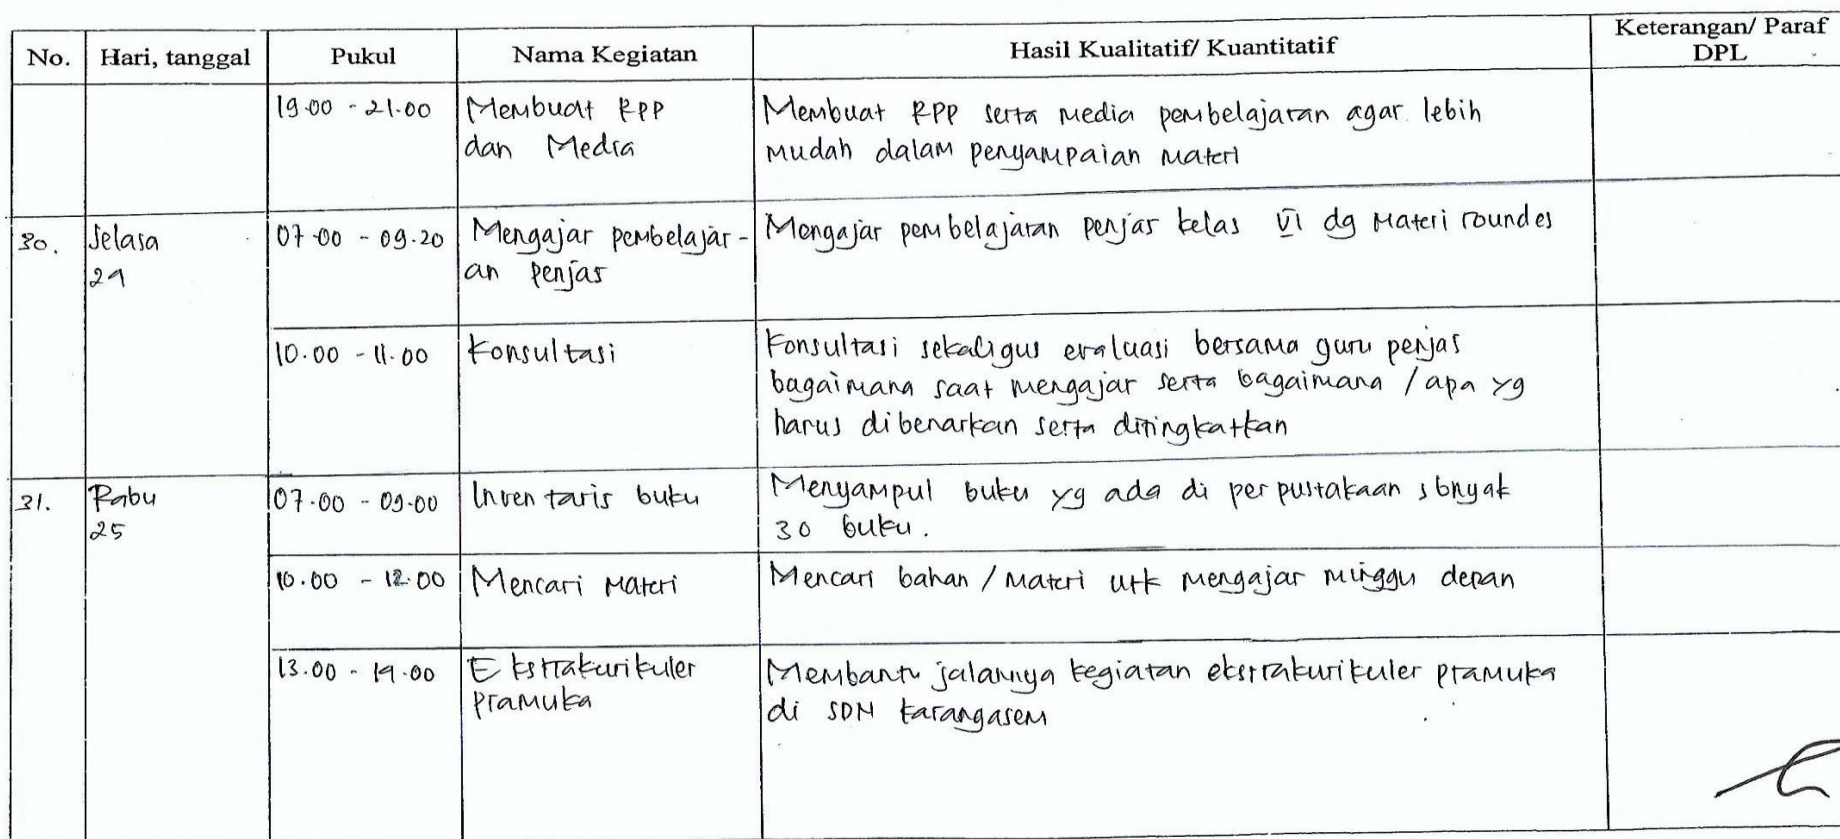 No. Hari, tanggal Pukul Nama Kegiatan Hasil Kualitatif/ Kuantitatif Keterangan/ Paraf
DPL
19.00 - 21.00 Membuat RPP Membuat RPP serta Media pembelajaran agar lebih
dan Media Mudah dalam penyampaian Materi
30. Selasa 07.00 - 09.20 Mengajar pembelajar- Mengajar pembelajaran penjas kelas VI dg Materi roundes
24 an penjas
10.00 - 11.00 Konsultasi Konsultasi sekaligus evaluasi bersama guru penjas
bagaimana saat mengajar serta bagaimana / apa yg
harus dibenarkan serta ditingkatkan
31. Rabu 07.00 - 09.00 Inventaris buku Menyampul buku yg ada di perpustakaan sbnyak
25 30 buku.
10.00 - 12.00 Mencari Materi Mencari bahan / Materi utk mengajar minggu depan
13.00 - 14.00 Ekstrakurikuler Membantu jalannya kegiatan ekstrakurikuler pramuka
pramuka di SDN Karangasem